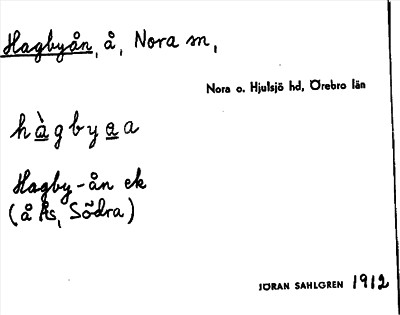 Hagbyån, å, Nora sn,
Nora o. Hjulsjö hd, Örebro län
hàgbyaa
Hagby-ån ek
(å Ås, Södra)
JÖRAN SAHLGREN 1912